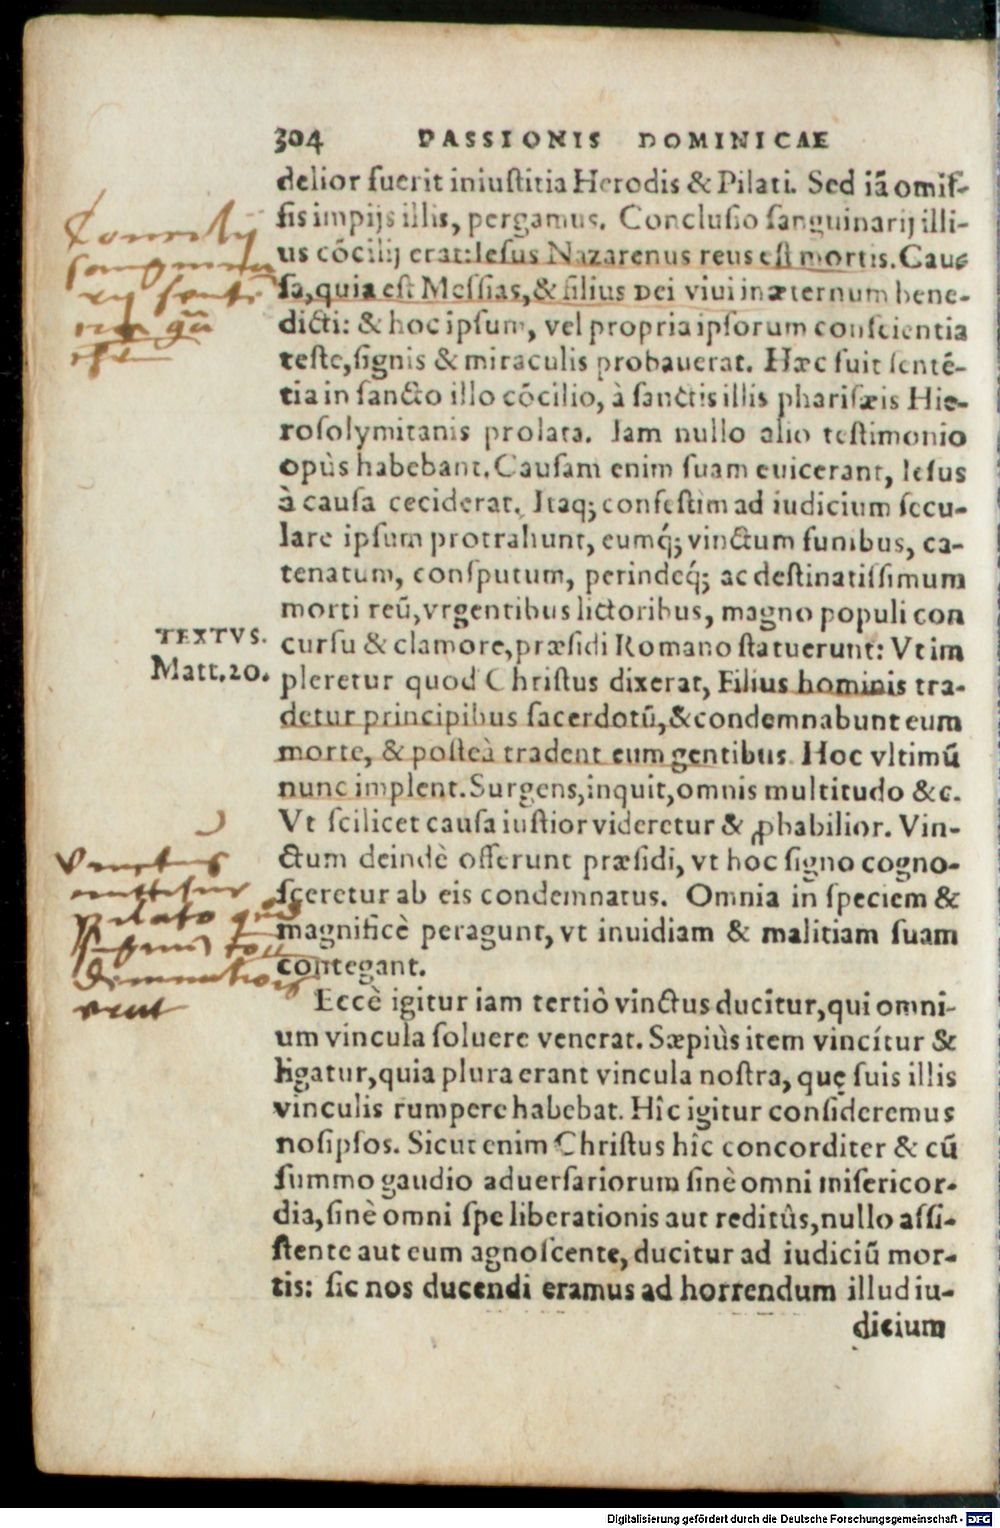 304 PASSIONIS DOMINICAE
delior fuerit iniustitia Herodis & Pilati. Sed iā omis-
sis impijs illis, pergamus. Conclusio sanguinarij illi-
us cōcilij erat: Iesus Nazarenus reus est mortis. Cau-
sa, quia est Messias, & filius Dei viui in æternum bene-
dicti: & hoc ipsum, vel propria ipsorum conscientia
teste, signis & miraculis probauerat. Hæc fuit sentē-
tia in sancto illo cōcilio, à sanctis illis pharisæis Hie-
rosolymitanis prolata. Iam nullo alio testimonio
opùs habebant. Causam enim suam euicerant, Iesus
à causa ceciderat. Itaq; confestim ad iudicium secu-
lare ipsum protrahunt, eumq́; vinctum funibus, ca-
tenatum, consputum, perindeq́; ac destinatissimum
morti reū, vrgentibus lictoribus, magno populi con
cursu & clamore, præsidi Romano statuerunt: Vt im
pleretur quod Christus dixerat, Filius hominis tra-
detur principibus sacerdotū, & condemnabunt eum
morte, & posteà tradent eum gentibus. Hoc vltimū
nunc implent. Surgens, inquit, omnis multitudo &c.
Vt scilicet causa iustior videretur & ꝓbabilior. Vin-
ctum deindè offerunt præsidi, vt hoc signo cogno-
sceretur ab eis condemnatus. Omnia in speciem &
magnificè peragunt, vt inuidiam & malitiam suam
contegant.
Eccè igitur iam tertiò vinctus ducitur, qui omni-
um vincula soluere venerat. Sæpiùs item vincítur &
ligatur, quia plura erant vincula nostra, quę suis illis
vinculis rumpere habebat. Hîc igitur consideremus
nosipsos. Sicut enim Christus hîc concorditer & cū
summo gaudio aduersariorum sinè omni misericor-
dia, sinè omni spe liberationis aut reditûs, nullo assi-
stente aut eum agnoscente, ducitur ad iudiciū mor-
tis: sic nos ducendi eramus ad horrendum illud iu-
dicium
TEXTVS.
Matt. 20.
Concilij
Vinctus
mittitur
pilato
erat
Digitalisierung gefördert durch die Deutsche Forschungsgemeinschaft - DFG